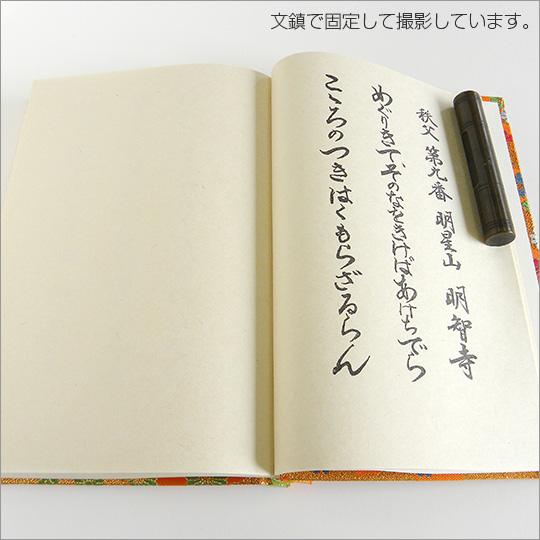 文鎮で固定して撮影しています。
秩父 第九番 明星山 明智寺
めぐりきて、そのなをきけばあけちでら
こころのつきはくもらざるらん